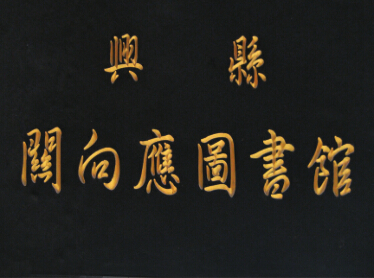 興縣
關向應圖書館